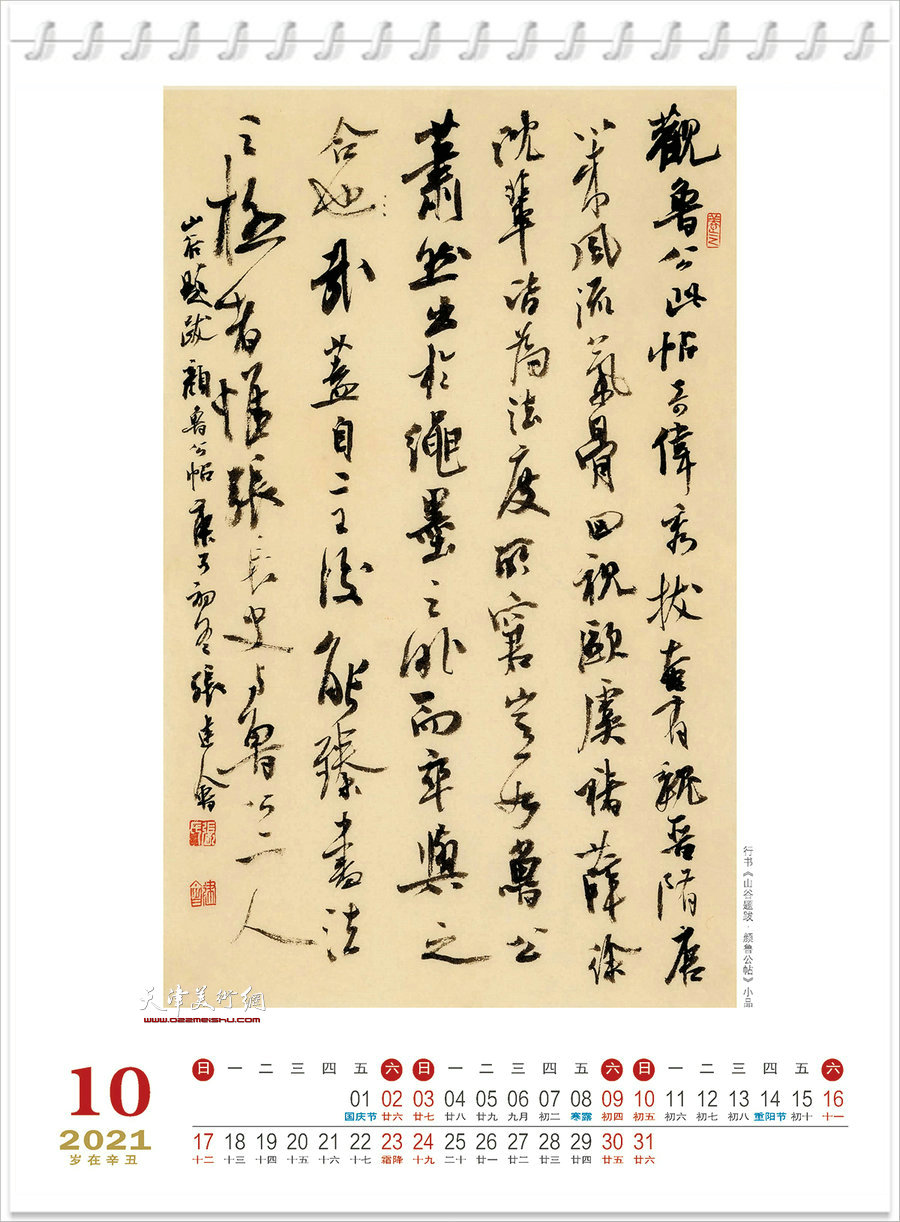 觀魯公此帖奇偉秀拔奄有魏晉隋唐
以來風流氣骨回視歐虞褚薛徐
沈輩皆為法度所窘豈如魯公
蕭然出於繩墨之外而卒與之
合也哉蓋自二王後能臻書法
之極者惟張長史與魯公二人
山谷題跋顏魯公帖庚子初冬張建會書
行书《山谷题跋·颜鲁公帖》小品
天津美術網
www.022meishu.com
10
2021
岁在辛丑
日 一 二 三 四 五 六 日 一 二 三 四 五 六 日 一 二 三 四 五 六
01 02 03 04 05 06 07 08 09 10 11 12 13 14 15 16
国庆节 廿六 廿七 廿八 廿九 九月 初二 寒露 初四 初五 初六 初七 初八 重阳节 初十 十一
17 18 19 20 21 22 23 24 25 26 27 28 29 30 31
十二 十三 十四 十五 十六 十七 霜降 十九 二十 廿一 廿二 廿三 廿四 廿五 廿六